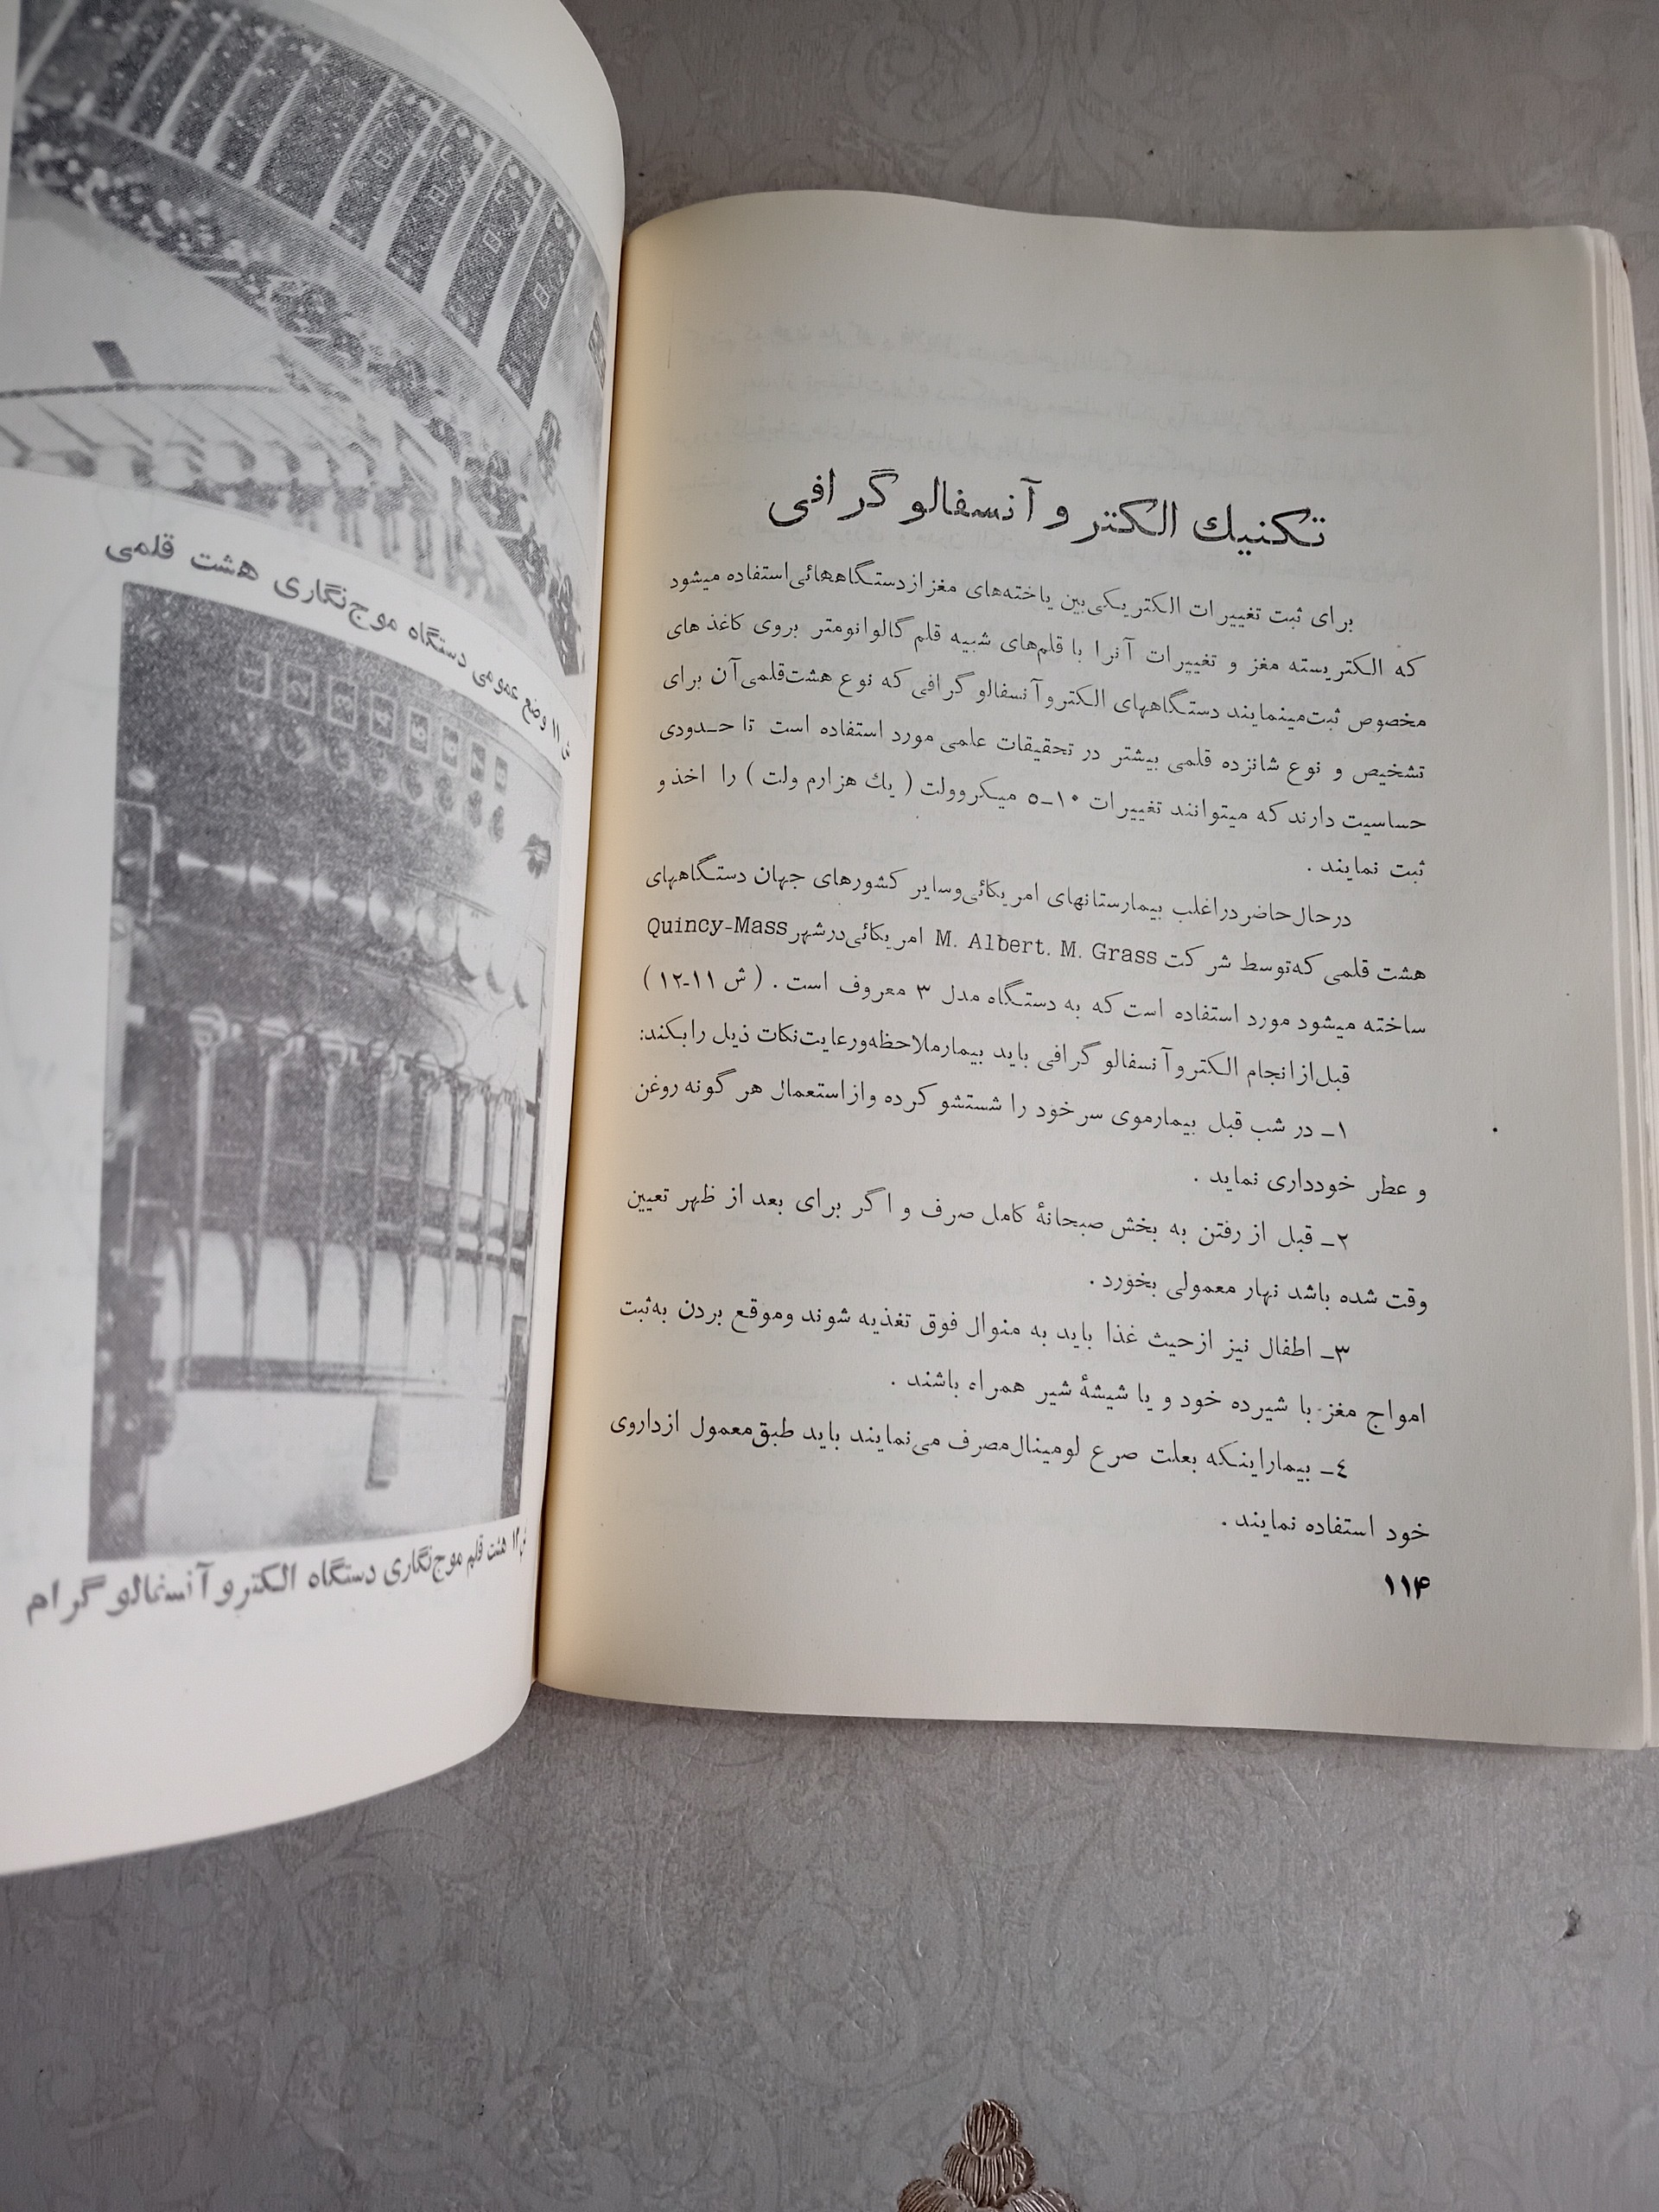 تكنيك الكتر و آنسفالو گرافی
برای ثبت تغییرات الکتریکی‌بین یاخته‌های مغز از دستگاههائی استفاده میشود
که الکتریسته مغز و تغییرات آنرا با قلم‌های شبیه قلم گالوانومتر بروی کاغذ های
مخصوص ثبت‌مینمایند دستگاههای الکتروآنسفالو گرافی که نوع هشت‌قلمی‌آن برای
تشخیص و نوع شانزده قلمی بیشتر در تحقیقات علمی مورد استفاده است تا حدودی
حساسیت دارند که میتوانند تغییرات ۱۰-۵ میکروولت ( یك هزارم ولت ) را اخذ و
ثبت نمایند .
درحال‌حاضر دراغلب بیمارستانهای امریکائی‌وسایر کشورهای جهان دستگاههای
هشت قلمی که‌توسط شرکت M. Albert. M. Grass امریکائی‌درشهر Quincy-Mass
ساخته میشود مورد استفاده است که به دستگاه مدل ۳ معروف است . ( ش ۱۱-۱۲ )
قبل‌ازانجام الکتروآنسفالو گرافی باید بیمارملاحظه‌ورعایت‌نکات ذیل رابکند:
۱ـ در شب قبل بیمارموی سرخود را شستشو کرده وازاستعمال هر گونه روغن
و عطر خودداری نماید .
۲ـ قبل از رفتن به بخش صبحانهٔ کامل صرف و اگر برای بعد از ظهر تعیین
وقت شده باشد نهار معمولی بخورد .
۳ـ اطفال نیز ازحیث غذا باید به منوال فوق تغذیه شوند وموقع بردن به‌ثبت
امواج مغز با شیرده خود و یا شیشهٔ شیر همراه باشند .
٤ـ بیماراینکه بعلت صرع لومینال‌مصرف می‌نمایند باید طبق‌معمول ازداروی
خود استفاده نمایند .
۱۱۴
ش ۱۱ وضع عمومی دستگاه موج‌نگاری هشت قلمی
1 2 3 4 5 6 7 8
هشت قلم موج‌نگاری دستگاه الکتروآنسفالو گرام